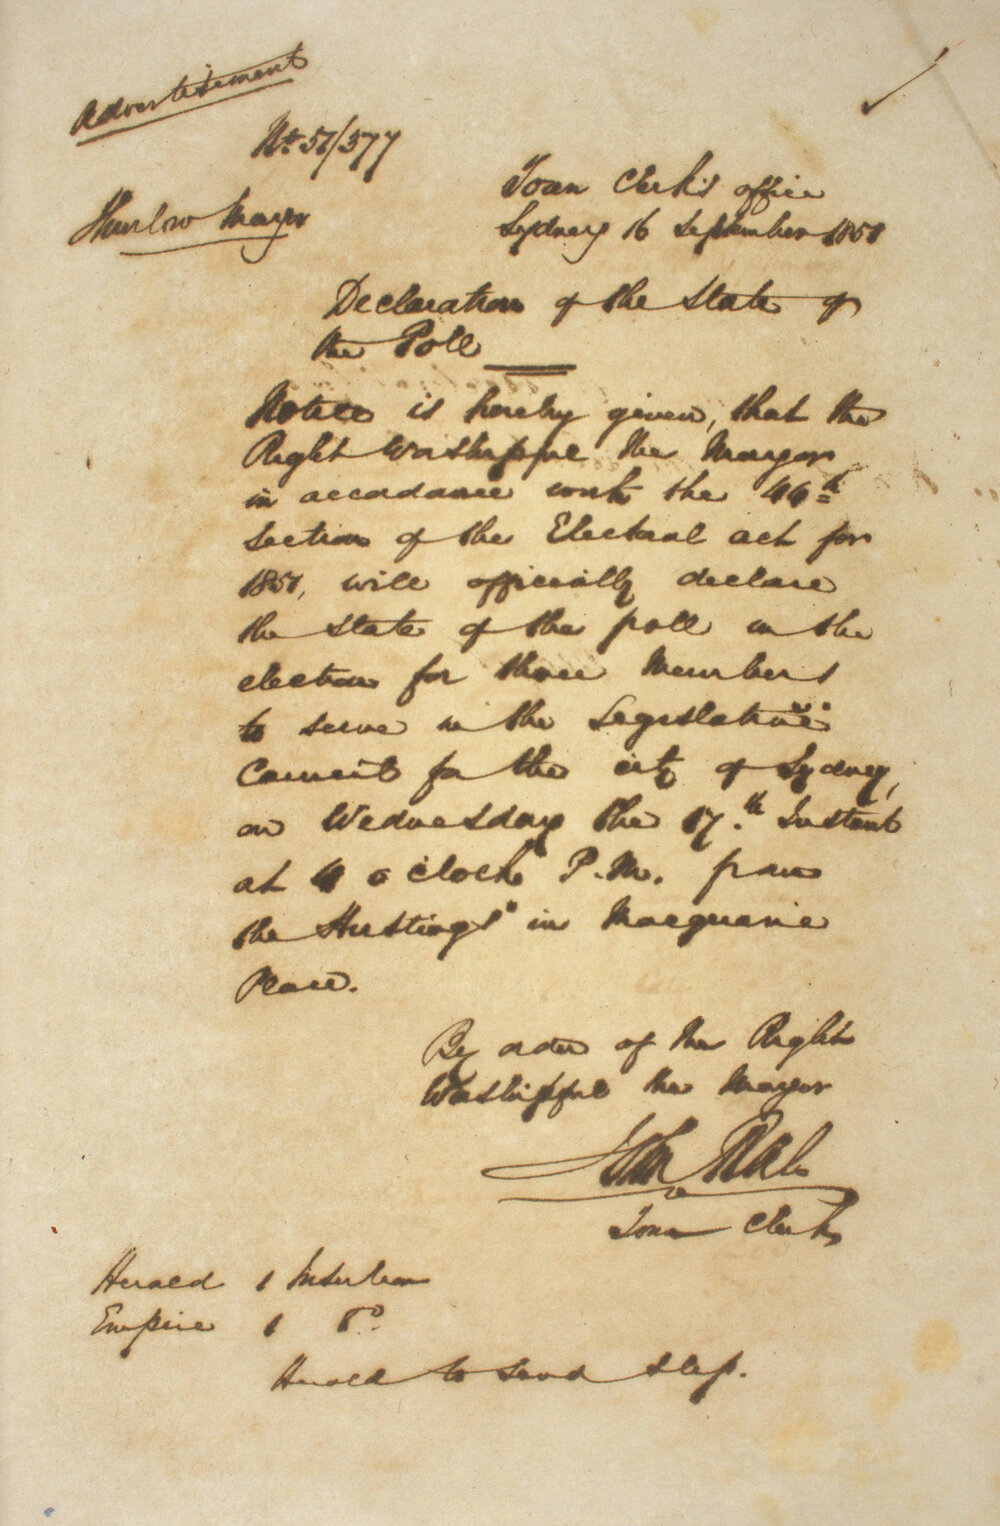 Advertisement
No. 51/377
Thurlow Mayor
Town Clerk's office
Sydney 16 September 1851
Declaration of the State of
the Poll
Notice is hereby given, that the
Right Worshipful the Mayor
in accordance with the 44th
Section of the Electoral act for
1851, will officially declare
the state of the poll in the
election for three Members
to serve in the Legislative
Council for the city of Sydney,
on Wednesday the 17.th Instant
at 4 o'clock P.M. from
the Hustings in Macquarie
Place.
By order of the Right
Worshipful the Mayor
John Rae
Town Clerk
Herald 1 Insertion
Empire 1 Do.
Herald to send slip.